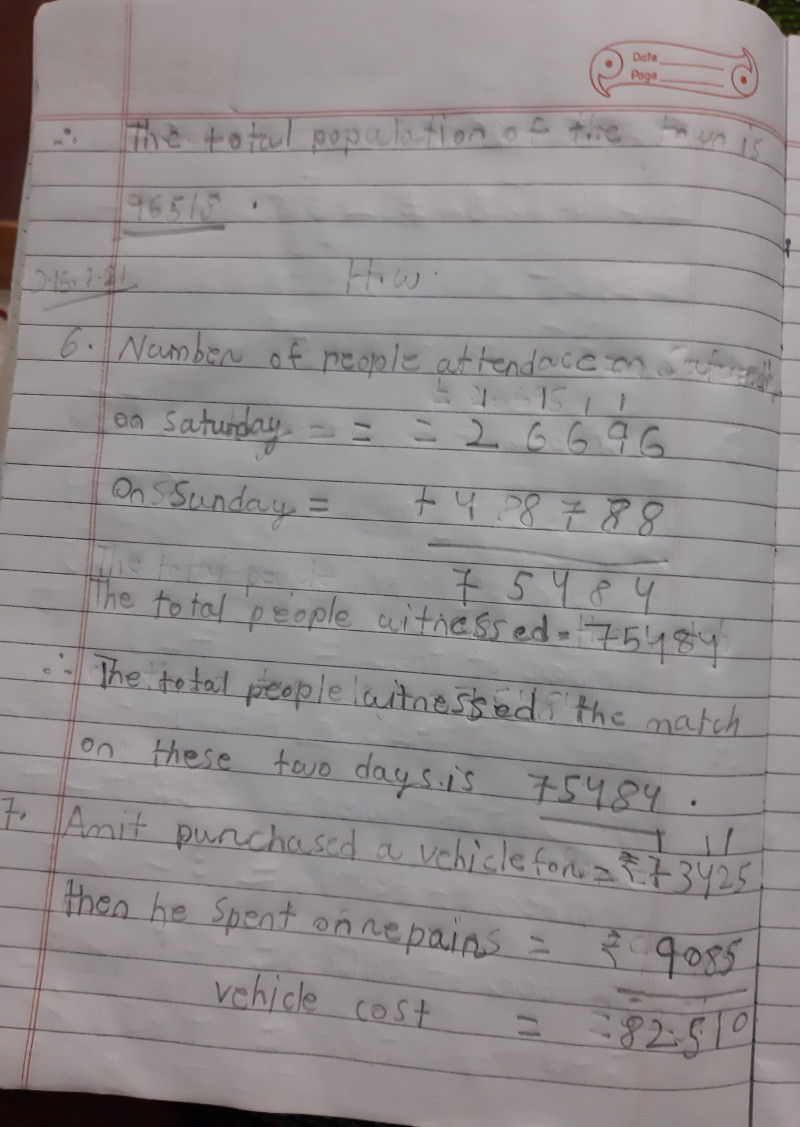 Date
Page
∴ The total population of the town is
96515 .
H.W.
6. Number of people attendace on
on saturday = = = 2 6 6 9 6
on Sunday = + 4 8 7 8 8
7 5 4 8 4
The total people witnessed = 75484
∴ The total people witnessed the match
on these two days is 75484 .
7. Amit purchased a vehicle for = ₹ 73425
then he spent on repairs = ₹ 9085
vehicle cost = = 82510